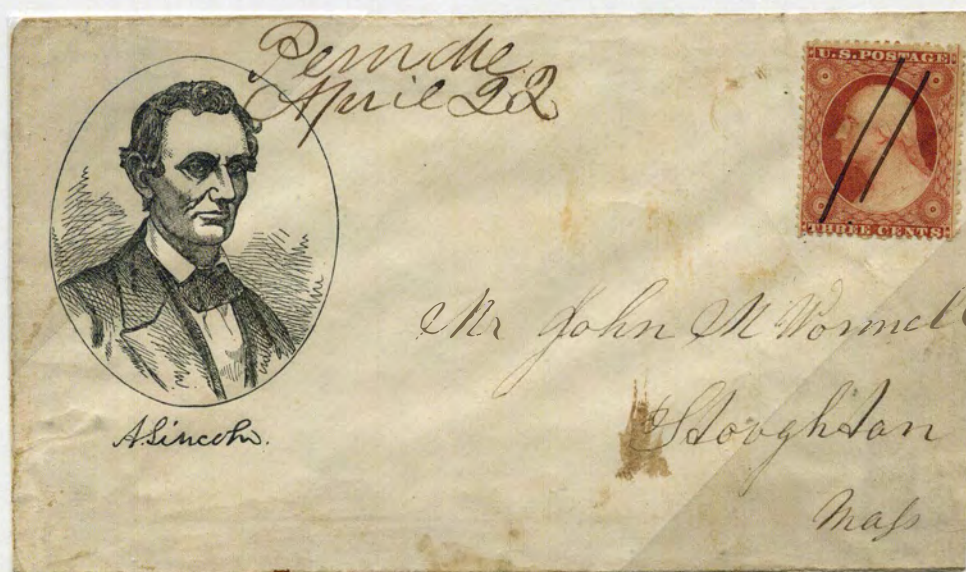 April 22
U.S. POSTAGE
THREE CENTS
A. Lincoln.
Mr John M Wormell
Stoughton
Mass